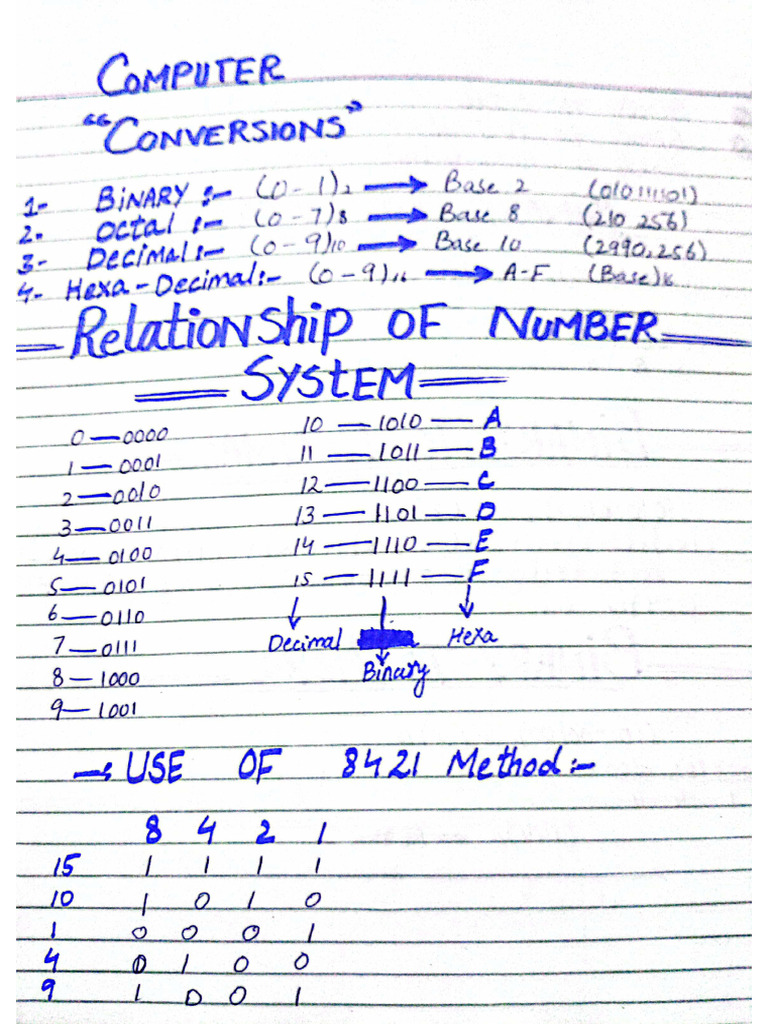 COMPUTER
"CONVERSIONS"
1- BINARY :- (0-1)2 → Base 2 (010111101)
2- OCTAL :- (0-7)8 → Base 8 (210,256)
3- DECIMAL :- (0-9)10 → Base 10 (2990,256)
4- Hexa-Decimal:- (0-9)16 → A-F (Base)16
Relationship OF NUMBER
SYSTEM
0 — 0000 10 — 1010 — A
1 — 0001 11 — 1011 — B
2 — 0010 12 — 1100 — C
3 — 0011 13 — 1101 — D
4 — 0100 14 — 1110 — E
5 — 0101 15 — 1111 — F
6 — 0110
7 — 0111 Decimal Hexa
8 — 1000 Binary
9 — 1001
→ USE OF 8421 Method:-
8 4 2 1
15 1 1 1 1
10 1 0 1 0
1 0 0 0 1
4 0 1 0 0
9 1 0 0 1